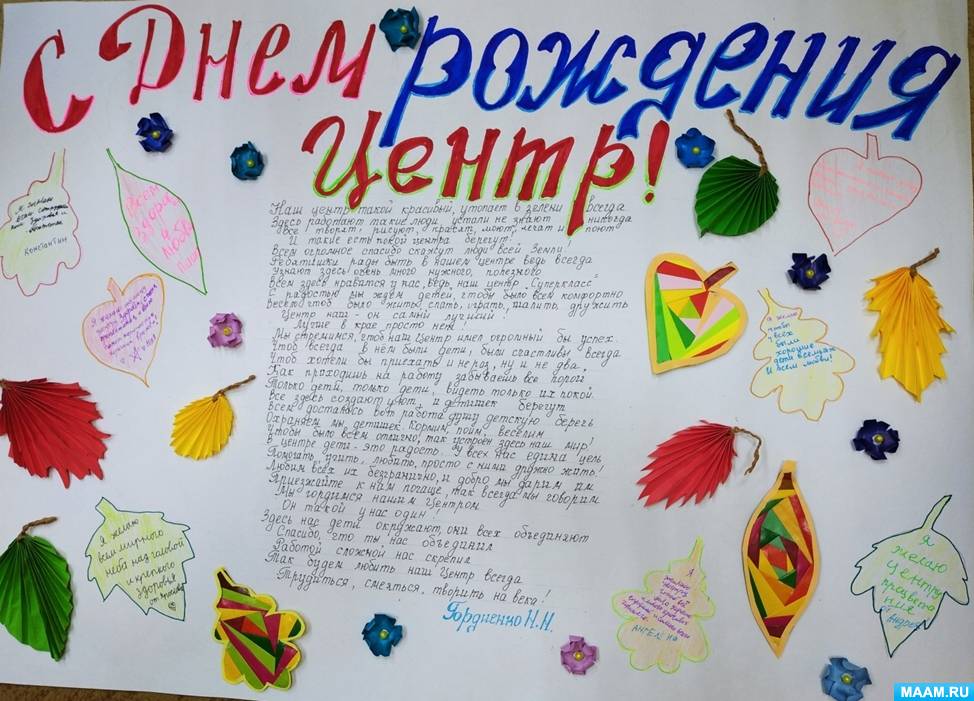 С Днем рождения
Центр!
Наш центр такой красивый, утопает в зелени всегда
Здесь работают такие люди устали не знают никогда
Все творят, рисуют, красят, моют, лечат и поют
И такие есть покой центра берегут!
Всем огромное спасибо скажут люди всей Земли!
Ребятишки рады быть в нашем центре ведь всегда
Узнают здесь очень много нужного, полезного
Всем здесь нравится у нас, ведь наш центр "Суперкласс"
С радостью мы ждём детей, чтобы было всем комфортно
Весело чтоб было жить, спать, играть, шалить, дружить
Центр наш - он самый лучший!
Лучше в крае просто нет!
Мы стремимся, чтоб наш Центр имел огромный бы успех.
Чтоб всегда в нём были дети, были счастливы всегда
Чтоб хотели бы приехать и не раз, ну и не два.
Как проходишь на работу забываешь все пороги
Только дети, только дети, видеть только их покой.
Все здесь создают уют, и детишек берегут
Всем досталась ведь работа душу детскую беречь
Охраняем мы, детишек кормим, поим, веселим
Чтобы было всем отлично, так устроен здесь наш мир!
В центре дети - это радость. У всех нас едина цель
Помогать, учить, любить, просто с ними дружно жить!
Любим всех их безгранично, и добро мы дарим им
Приезжайте к нам почаще, так всегда мы говорим
Мы гордимся нашим Центром
Он такой у нас один!
Здесь нас дети окружают, они всех объединяют
Спасибо, что ты нас объединил
Работой сложной нас скрепил
Так будем любить наш Центр всегда
Трудиться, смеяться, творить на века!
Гордиенко Н.Н.
Константин
Всем
здоровья
и
любви
Я желаю
чтобы
у всех
были
хорошие
дети
И всем любви!
Я желаю
всем мирного
неба над головой
и крепкого
здоровья
от
Я
желаю
Центру
процвета
ния
Андрей
Я
желаю
АНГЕЛИНА
MAAM.RU